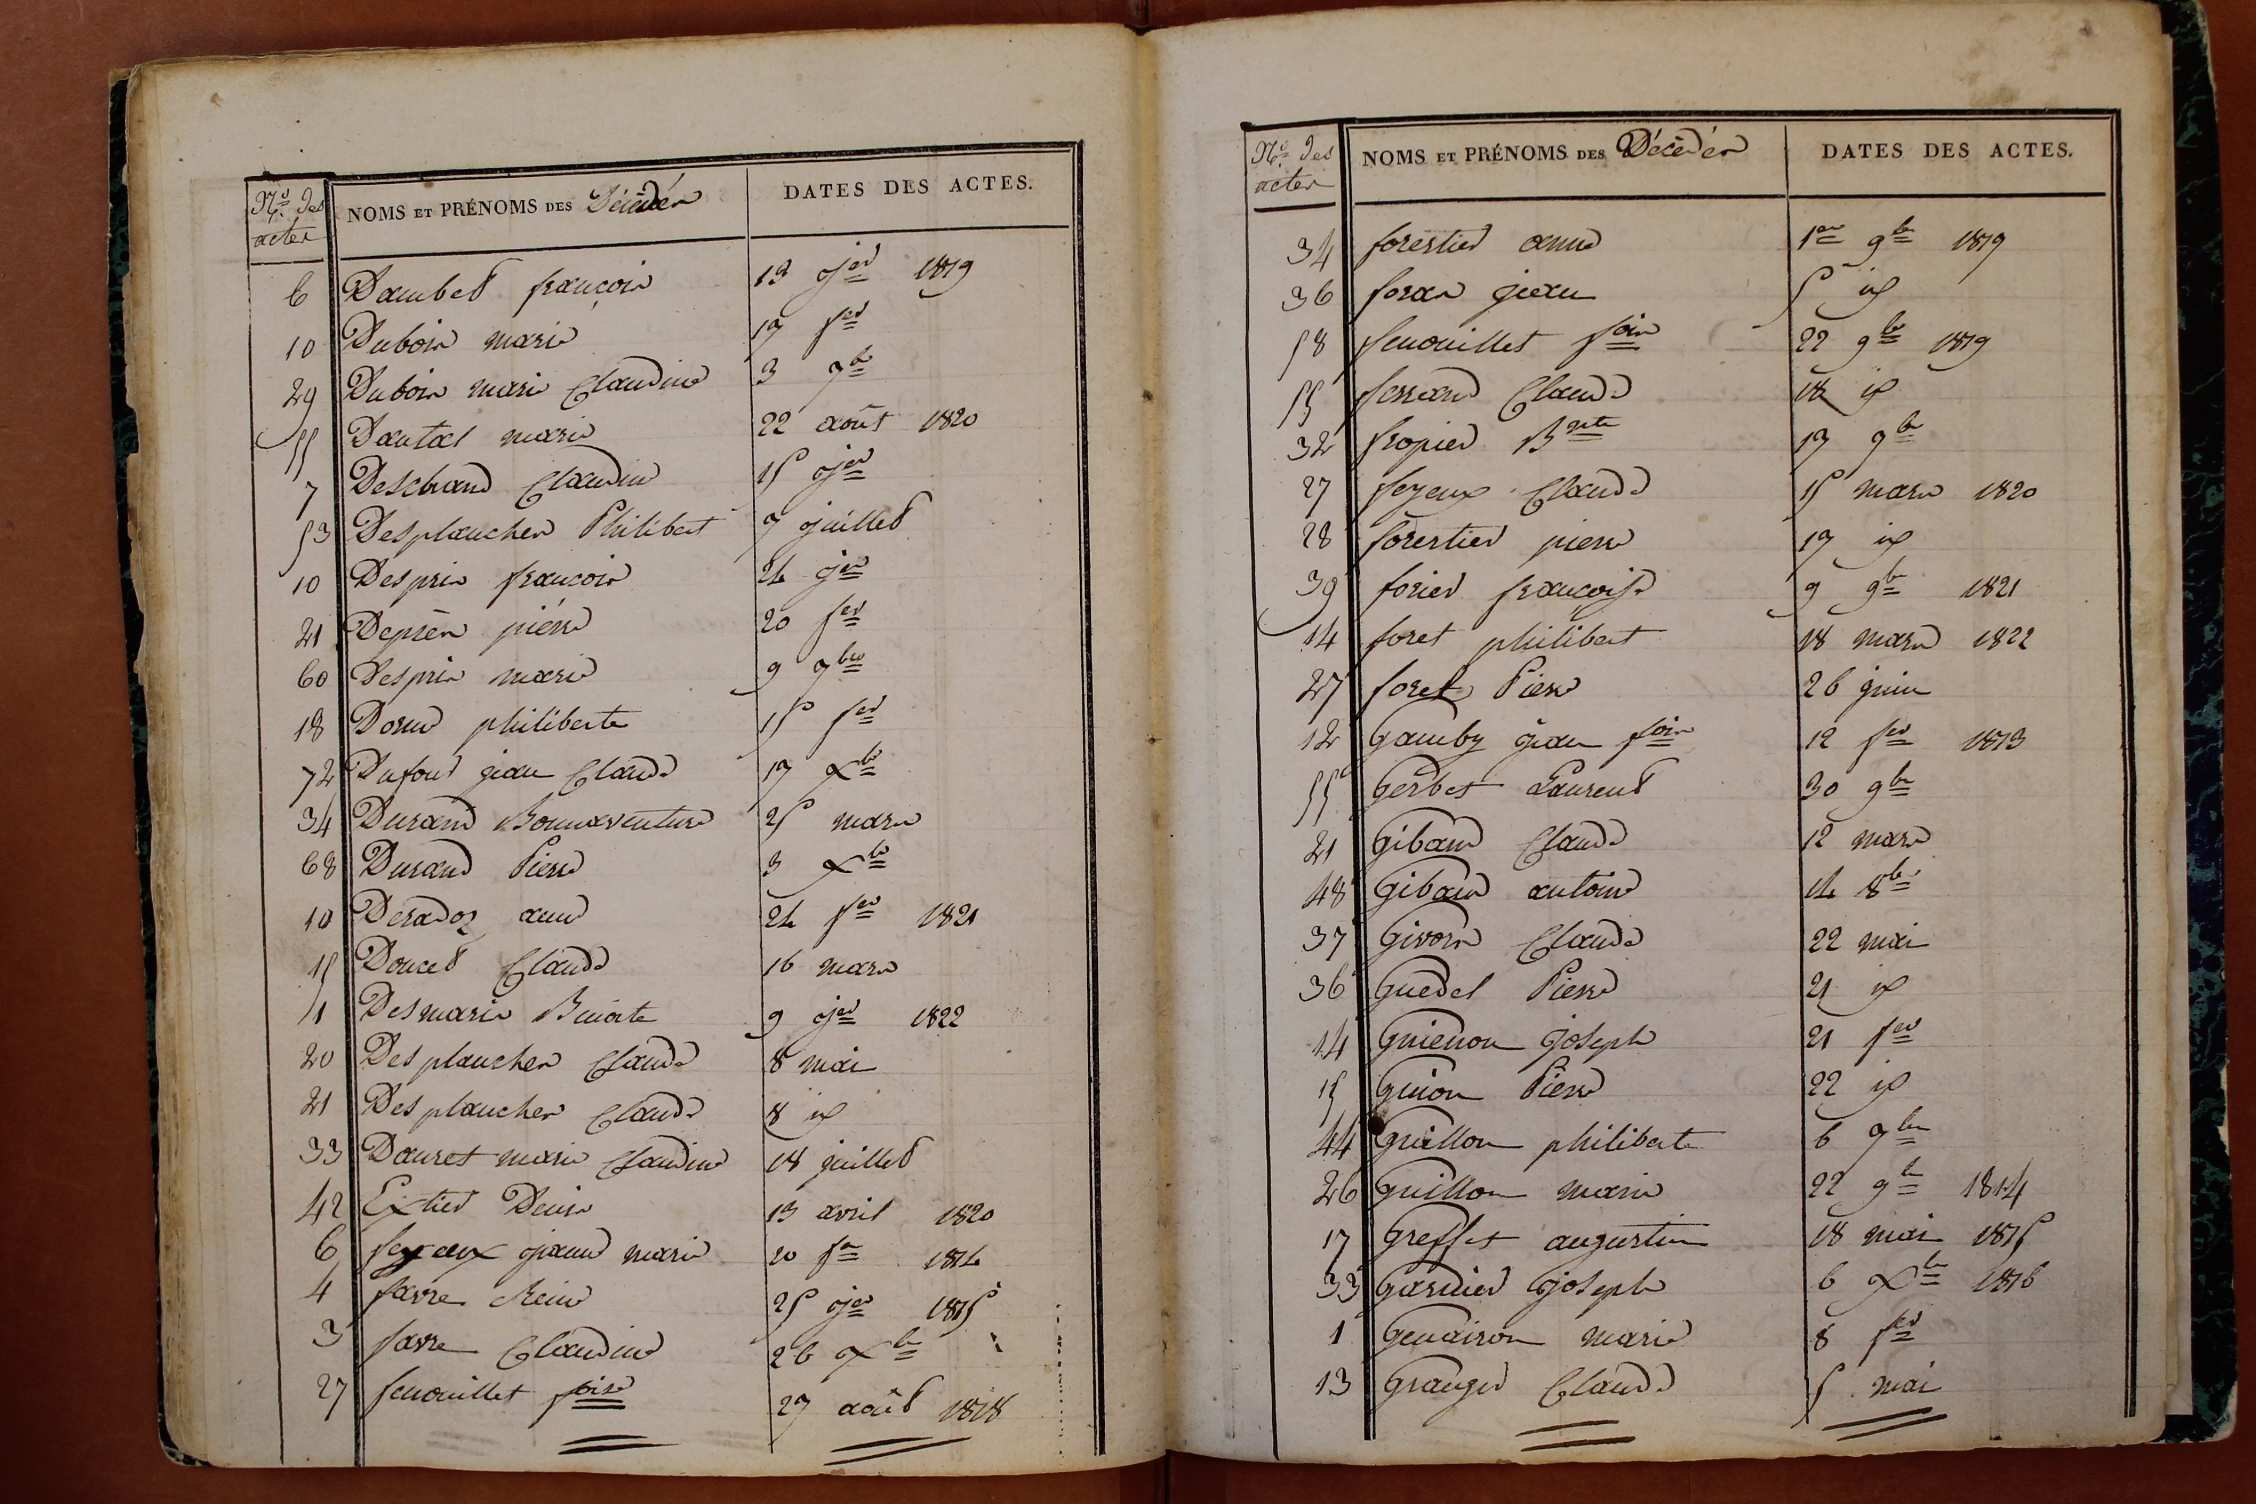 Nos des actes NOMS ET PRÉNOMS DES Décédés DATES DES ACTES.
6 Dambet françois 13 jer 1819
10 Dubois marie 17 fer
29 Dubois marie Claudine 3 7bre
55 Dautal marie 22 août 1820
7 Desebrand Claudine 15 jer
53 Desplanches Philibert 7 juillet
10 Despris françois 24 jer
21 Deprés pierre 20 fer
60 Despris marie 9 7bre
18 Dorme philiberte 15 fer
72 Dufour jean Claude 17 Xbre
34 Durand Bonnaventure 25 mars
68 Durand Pierre 3 Xbre
10 Deradoz anne 24 fer 1821
15 Doucet Claude 16 mars
1 Desmaris Benoite 9 jer 1822
20 Desplanches Claude 8 mai
21 Desplanches Claude 8 id
33 Dauret marie Claudine 18 juillet
42 Extier Denis 13 avril 1820
6 feyeux jeanne marie 20 fer 1814
4 favre Reine 25 jer 1815
3 favre Claudine 26 Xbre
27 fenouillet foise 27 août 1818
Nos des actes NOMS ET PRÉNOMS DES Décédés DATES DES ACTES.
34 forestier anne 1er 9bre 1819
36 foras jean 5 id
58 fenouillet fois 22 9bre 1819
55 ferrand Claude 18 id
32 fropier Bnite 17 9bre
27 feyeux Claude 15 mars 1820
28 forestier pierre 17 id
39 forier françoise 9 9bre 1821
14 foret philibert 18 mars 1822
27 foret Pierre 26 juin
12 Gamby jean fois 12 fer 1813
55 Gerbet Laurent 30 9bre
21 Gibaud Claude 12 mars
48 Gibaud antoine 14 8bre
37 Givors Claude 22 mai
36 Guedel Pierre 21 id
14 Guienon joseph 21 fer
15 Guion Pierre 22 id
44 Guillon philiberte 6 7bre
26 Guillon marie 22 9bre 1814
17 Greffet augustin 18 mai 1815
33 Garnier joseph 6 Xbre 1816
1 Genairon marie 8 fer
13 Granger Claude 5 mai